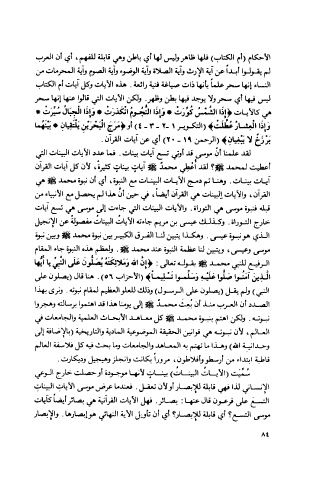 الأحكام (أم الكتاب) فلها ظاهر وليس لها أي باطن وهي قابلة للفهم، أي أن العرب
لم يقولوا أبداً عن آية الإرث وآية الصلاة وآية الوضوء وآية الصوم وآية المحرمات من
النساء إنها سحر علماً بأنها ذات صياغة فنية رائعة. هذه الآيات وكل آيات أم الكتاب
ليس فيها أي سحر ولا يوجد فيها بطن وظهر. ولكن الآيات التي قالوا عنها إنها سحر
هي كالآيات ﴿إِذَا الشَّمْسُ كُوِّرَتْ * وَإِذَا النُّجُومُ انْكَدَرَتْ * وَإِذَا الْجِبَالُ سُيِّرَتْ *
وَإِذَا الْعِشَارُ عُطِّلَتْ﴾ (التكوير ١-٢-٣-٤) أو ﴿مَرَجَ الْبَحْرَيْنِ يَلْتَقِيَانِ * بَيْنَهُمَا
بَرْزَخٌ لَا يَبْغِيَانِ﴾ (الرحمن ١٩-٢٠) أي عن آيات القرآن.
لقد علمنا أن موسى قد أوتي تسع آيات بينات. فما عدد الآيات البينات التي
أعطيت لمحمد ﷺ؟ لقد أُعطي محمد ﷺ آيات بينات كثيرة، لأن كل آيات القرآن
آيات بينات. وهنا تم دمج الآيات البينات مع النبوة، أي أن نبوة محمد ﷺ هي
القرآن، والآيات البينات هي القرآن أيضاً، في حين أن هذا لم يحصل مع الأنبياء من
قبله فنبوة موسى هي التوراة. والآيات البينات التي جاءت إلى موسى هي تسع آيات
خارج التوراة. وكذلك عيسى بن مريم جاءته الآيات البينات مفصولة عن الإنجيل
الذي هو نبوة عيسى. وهكذا يتبين لنا الفرق الكبير بين نبوة محمد ﷺ وبين نبوة
موسى وعيسى، ويتبين لنا عظمة النبوة عند محمد ﷺ. ولعظم هذه النبوة جاء المقام
الرفيع للنبي محمد ﷺ بقوله تعالى: ﴿إِنَّ اللَّهَ وَمَلَائِكَتَهُ يُصَلُّونَ عَلَى النَّبِيِّ يَا أَيُّهَا
الَّذِينَ آمَنُوا صَلُّوا عَلَيْهِ وَسَلِّمُوا تَسْلِيماً﴾ (الأحزاب ٥٦). هنا قال (يصلون على
النبي) ولم يقل (يصلون على الرسول) وذلك للعلو العظيم لمقام نبوته. ونرى بهذا
الصدد أن العرب منذ أن بُعث محمد ﷺ إلى يومنا هذا قد اهتموا برسالته وهجروا
نبوته. ولكن اهتم بنبوة محمد ﷺ كل معاهد الأبحاث العلمية والجامعات في
العالم، لأن نبوته هي قوانين الحقيقة الموضوعية المادية والتاريخية (بالإضافة إلى
وحدانية الله) وهذا ما تهتم به المعاهد والجامعات وما بحث فيه كل فلاسفة العالم
قاطبة ابتداء من أرسطو وأفلاطون، مروراً بكانت وانجلز وهيجل وديكارت.
سُمِّيَت (الآيات البينات) بينات لأنها موجودة أو حصلت خارج الوعي
الإنساني لذا فهي قابلة للإبصار أو لأن تعقل. فعندما عرض موسى الآيات البينات
التسع على فرعون قال عنها: بصائر. فهل الآيات القرآنية هي بصائر أيضاً كآيات
موسى التسع؟ أي قابلة للإبصار؟ أي أن تأويل الآية النهائي هو إبصارها. والإبصار
٨٤